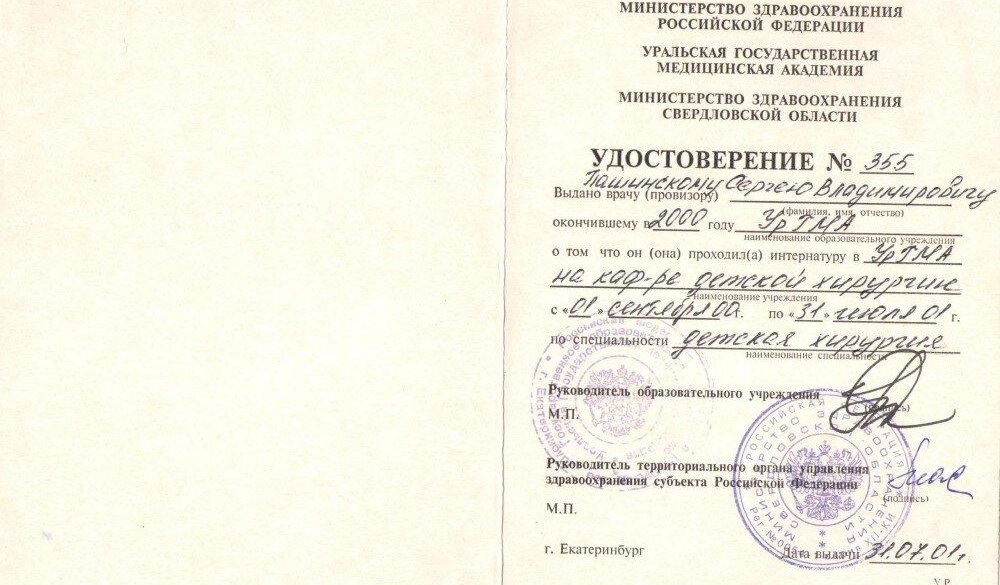 МИНИСТЕРСТВО ЗДРАВООХРАНЕНИЯ
РОССИЙСКОЙ ФЕДЕРАЦИИ
УРАЛЬСКАЯ ГОСУДАРСТВЕННАЯ
МЕДИЦИНСКАЯ АКАДЕМИЯ
МИНИСТЕРСТВО ЗДРАВООХРАНЕНИЯ
СВЕРДЛОВСКОЙ ОБЛАСТИ
УДОСТОВЕРЕНИЕ № 355
Выдано врачу (провизору) Пашинскому Сергею Владимировичу
(фамилия, имя, отчество)
окончившему в 2000 году УрГМА
наименование образовательного учреждения
о том что он (она) проходил(а) интернатуру в УрГМА
на каф-ре детской хирургии
наименование учреждения
с «01» сентября 00 г. по «31» июля 01 г.
по специальности детская хирургия
наименование специальности
Руководитель образовательного учреждения
(подпись)
М.П.
Руководитель территориального органа управления
здравоохранения субъекта Российской Федерации
(подпись)
М.П.
г. Екатеринбург Дата выдачи 31.07.01г.